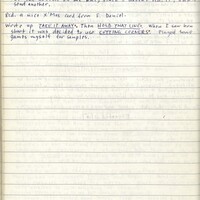 send another.
Did a nice X'Mas card from S. Daniel.
Wrote up TAKE IT AWAY. Then HOLD THAT LINE. When I saw how
short it was decided to use CUTTING CORNERS. Played some
games myself for samples.